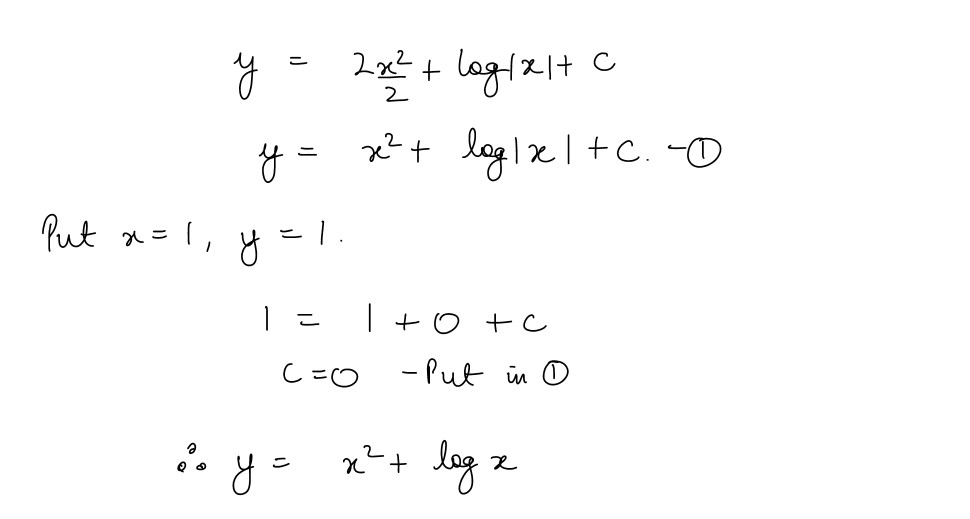 y = 2x²/2 + log|x| + c
y = x² + log|x| + c. -①
Put x = 1, y = 1.
1 = 1 + 0 + c
c = 0 - Put in ①
∴ y = x² + log x